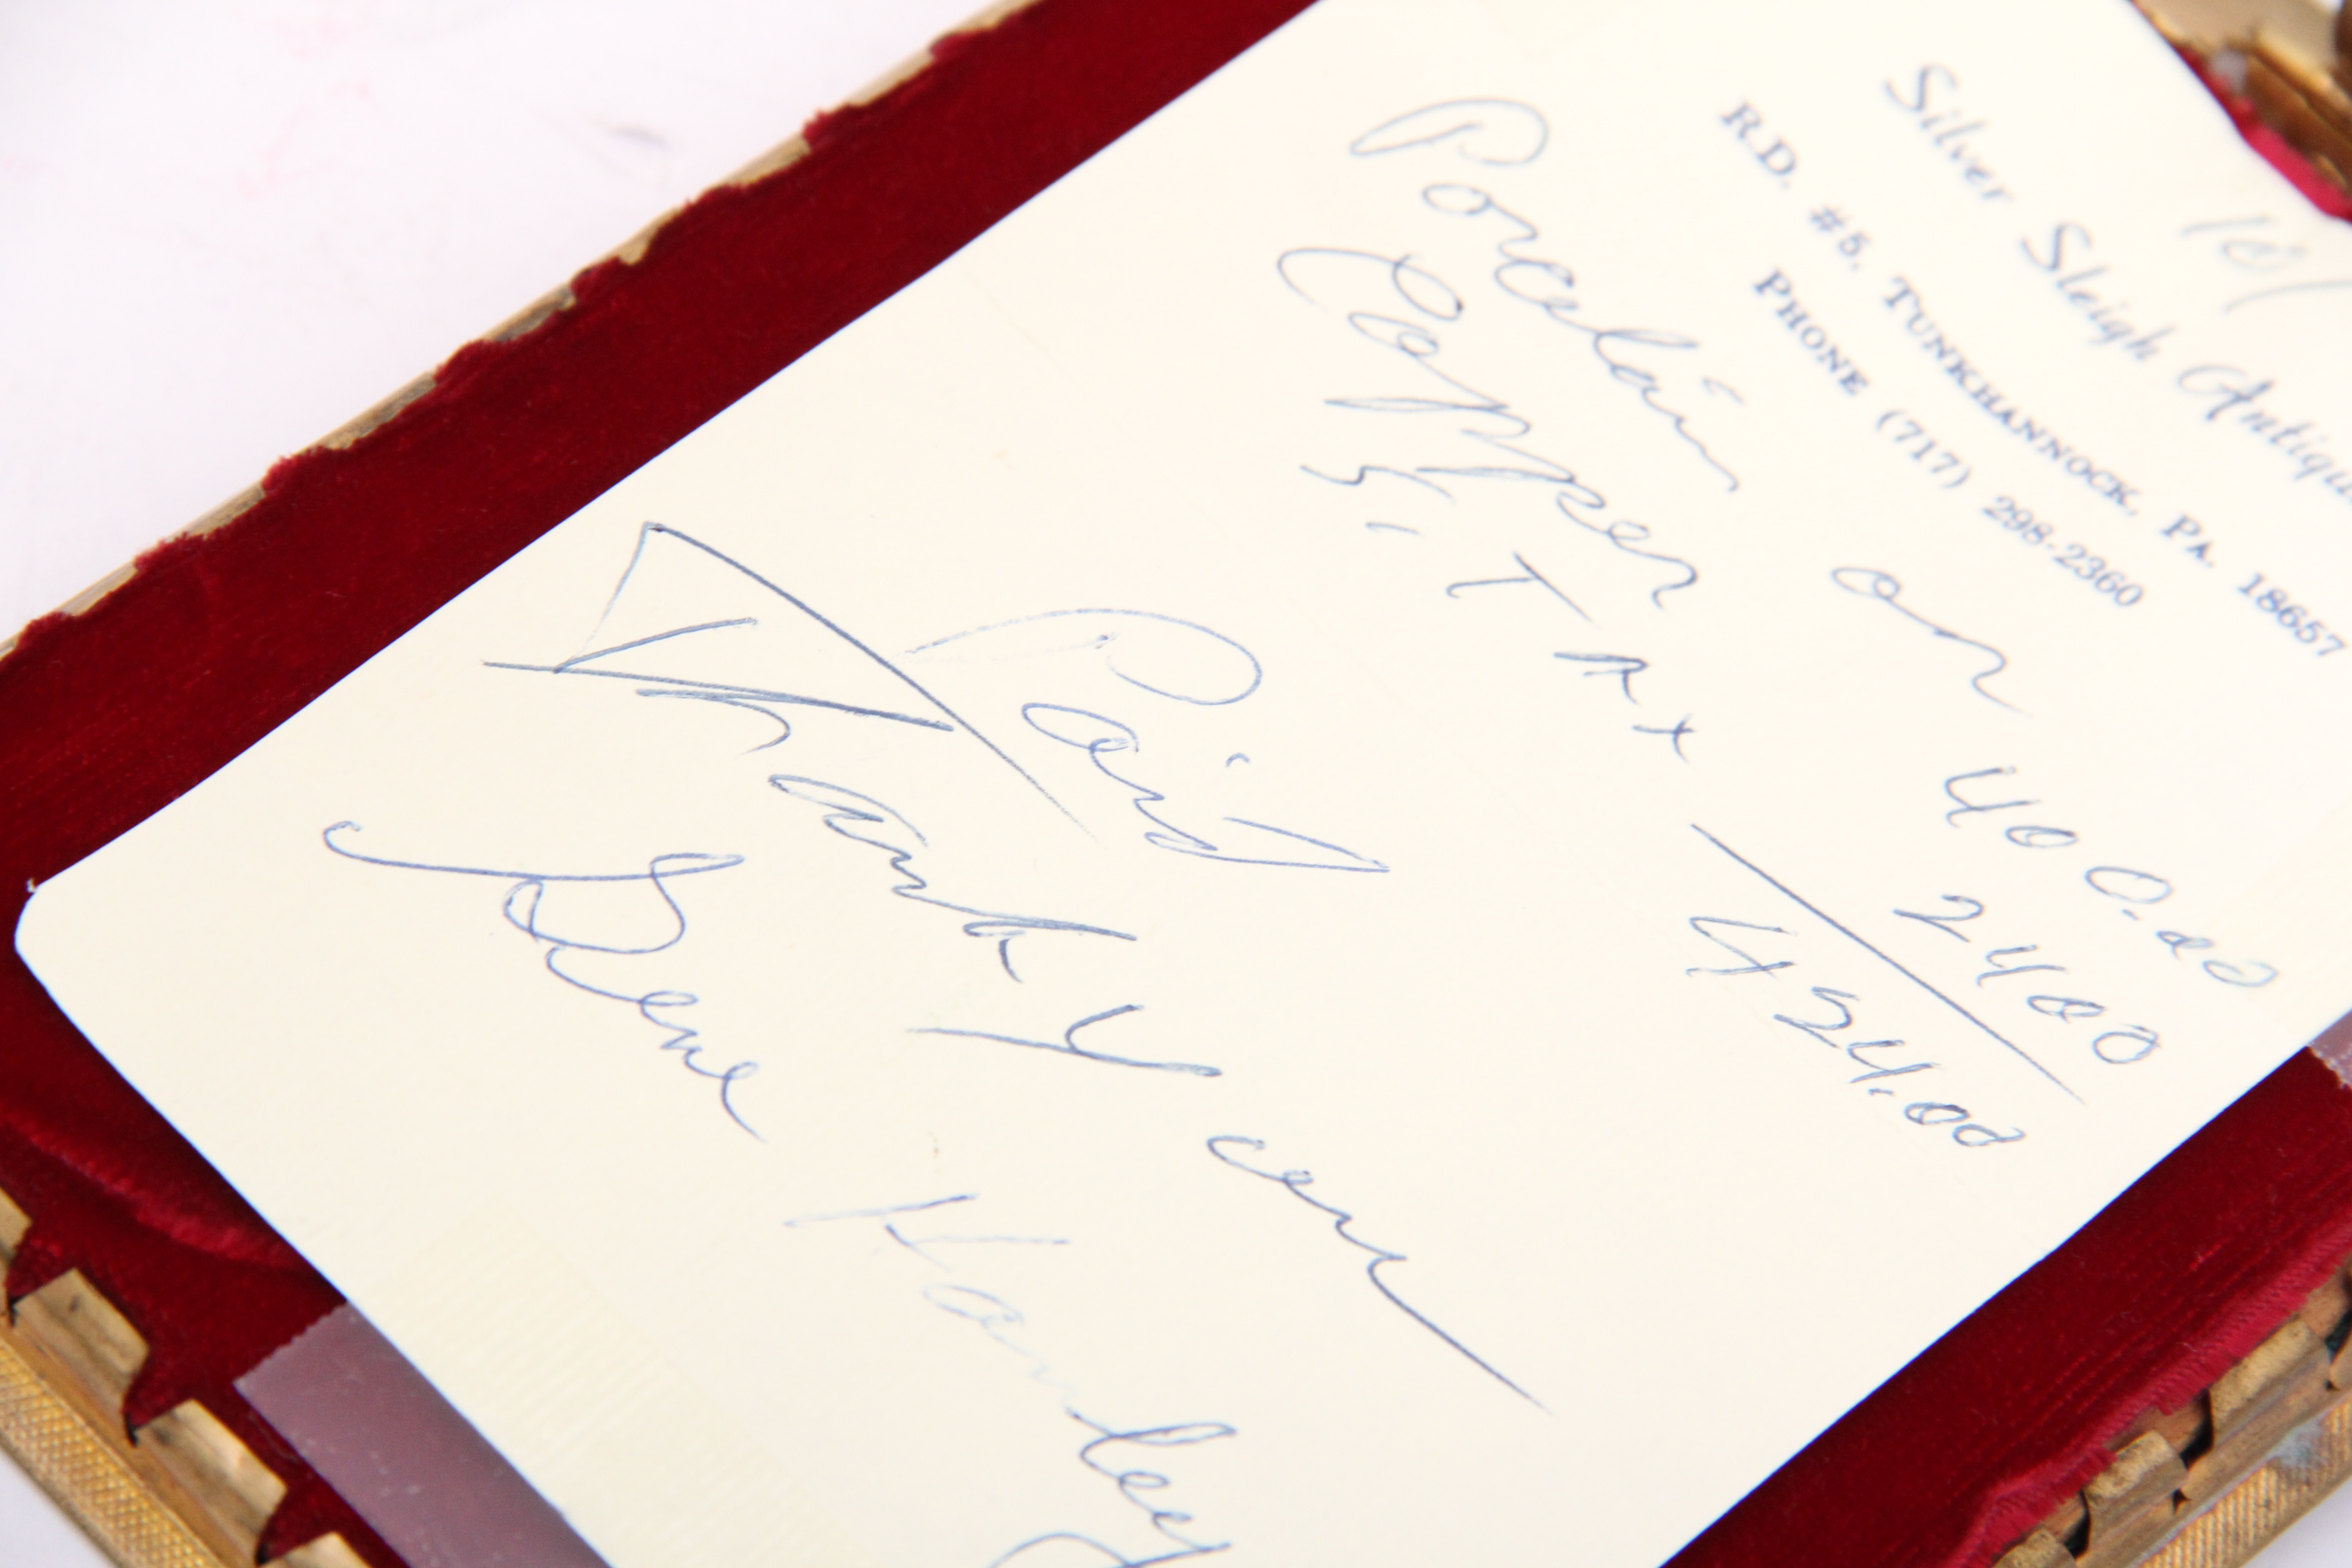 10/
Silver Sleigh Antiqu
R.D. #5, TUNKHANNOCK, PA. 18657
PHONE (717) 298-2360
Porcelain on 400.00
Copper
TAX 2400
424.00
Paid
Thank You
Gene Kanley